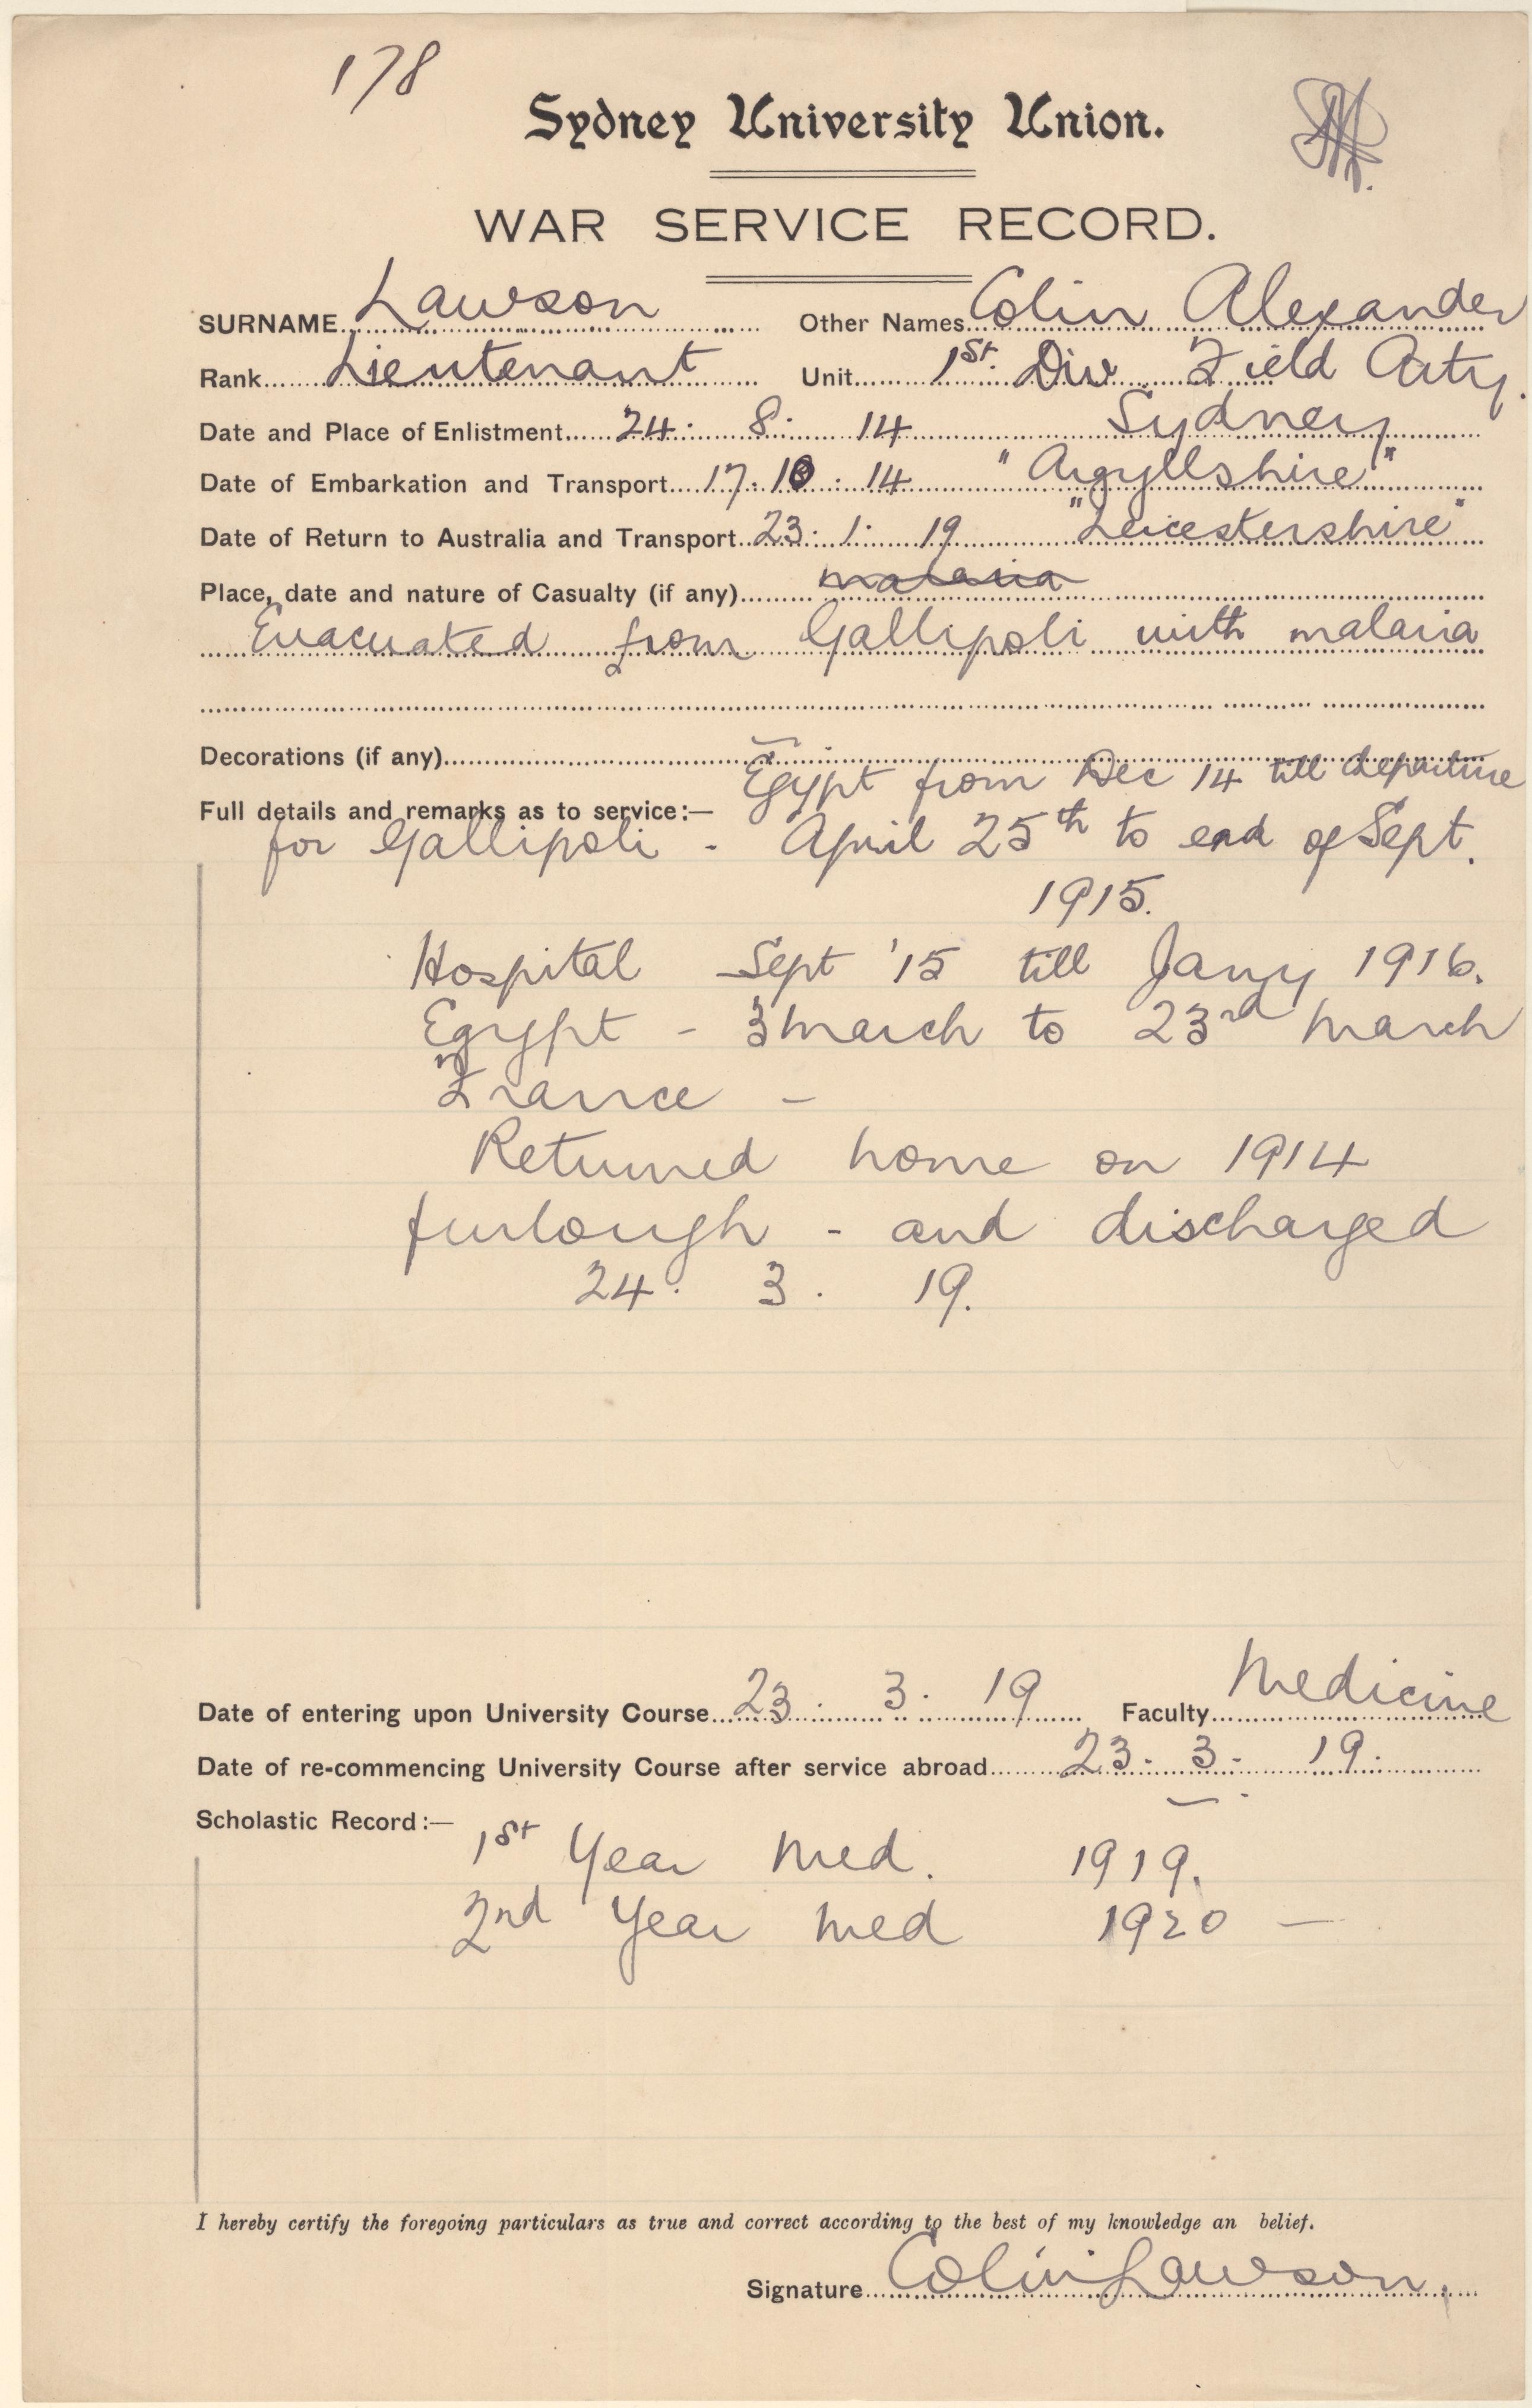 178
Sydney University Union.
WAR SERVICE RECORD.
SURNAME Lawson Other Names Colin Alexander
Rank Lieutenant Unit 1st Div Field Arty.
Date and Place of Enlistment 24. 8. 14 Sydney
Date of Embarkation and Transport 17. 10. 14 "Argyllshire"
Date of Return to Australia and Transport 23. 1. 19 "Leicestershire"
Place, date and nature of Casualty (if any) malaria
Evacuated from Gallipoli with malaria
Decorations (if any)
Full details and remarks as to service:— Egypt from Dec 14 till departure
for Gallipoli - April 25th to end of Sept.
1915.
Hospital Sept '15 till Jany 1916.
Egypt - 3 March to 23rd March
France -
Returned home on 1914
furlough - and discharged
24. 3. 19.
Date of entering upon University Course 23. 3. 19 Faculty Medicine
Date of re-commencing University Course after service abroad 23. 3. 19.
Scholastic Record:—
1st Year Med. 1919.
2nd Year Med 1920 —
I hereby certify the foregoing particulars as true and correct according to the best of my knowledge an belief.
Signature Colin Lawson.